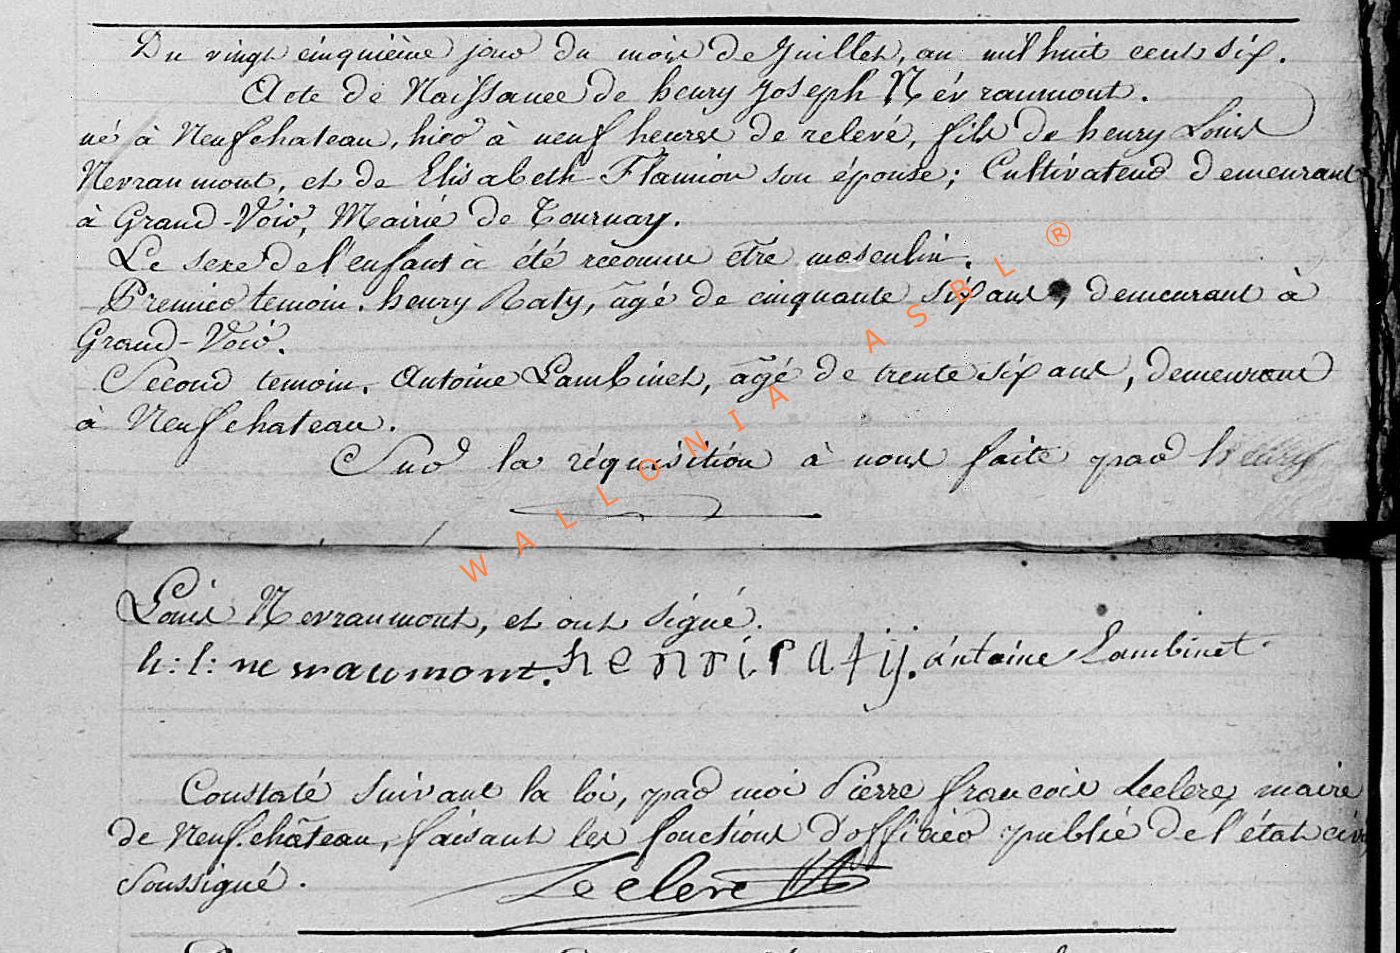 Du vingt cinquième jour du mois de Juillet, an mil huit cent six.
Acte de Naissance de henry Joseph Névraumont.
né à Neufchateau, hier à neuf heures de relevé, fils de henry Louis
Nevraumont, et de Elisabeth Flamion son épouse; Cultivateur demeurant
à Grand-Voir, Mairie de Tournay.
Le sexe de l'enfant à été reconnu être masculin.
Premier temoin. henry Raty, âgé de cinquante six ans, demeurant à
Grand-Voir.
Second temoin. Antoine Lambinet, âgé de trente six ans, demeurant
à Neufchateau.
Sur la réquisition à nous faite par henry
Louis Nevraumont, et ont signé.
h: l: nevraumont. henri raty. antoine Lambinet.
Constaté suivant la loi, par moi Pierre françois Leclere, maire
de Neufchâteau, faisant les fonctions d'officier public de l'état civ
Soussigné.
Leclere
WALLONIA ASBL ®